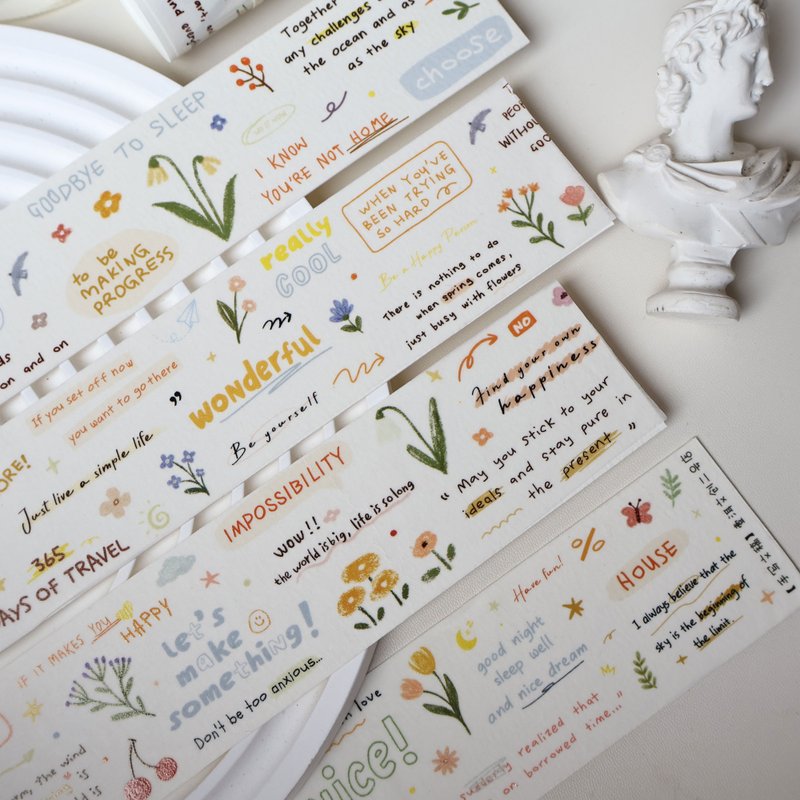 Together
any challenges
the ocean and as
as the sky
choose
GOODBYE TO SLEEP
I KNOW
YOU'RE NOT HOME
to be
MAKING
PROGRESS
on and on
WITHOU
WHEN YOU'VE
BEEN TRYING
SO HARD
really
COOL
Be a Happy Person
There is nothing to do
when spring comes,
just busy with flowers
If you set off now
you want to go there
wonderful
Be yourself
NO
Find your own
happiness
ORE!
Just live a simple life
365
AYS OF TRAVEL
IMPOSSIBILITY
WOW!!
the world is big, life is so long
"May you stick to your
ideals and stay pure in
the present"
IF IT MAKES YOU
HAPPY
Let's
make
something!
Don't be too anxious...
the wind
is
Have fun!
%
HOUSE
I always believe that the
sky is the beginning of
the limit.
good night
sleep well
and nice dream
in love
nice!
suddenly realized that
on borrowed time..."